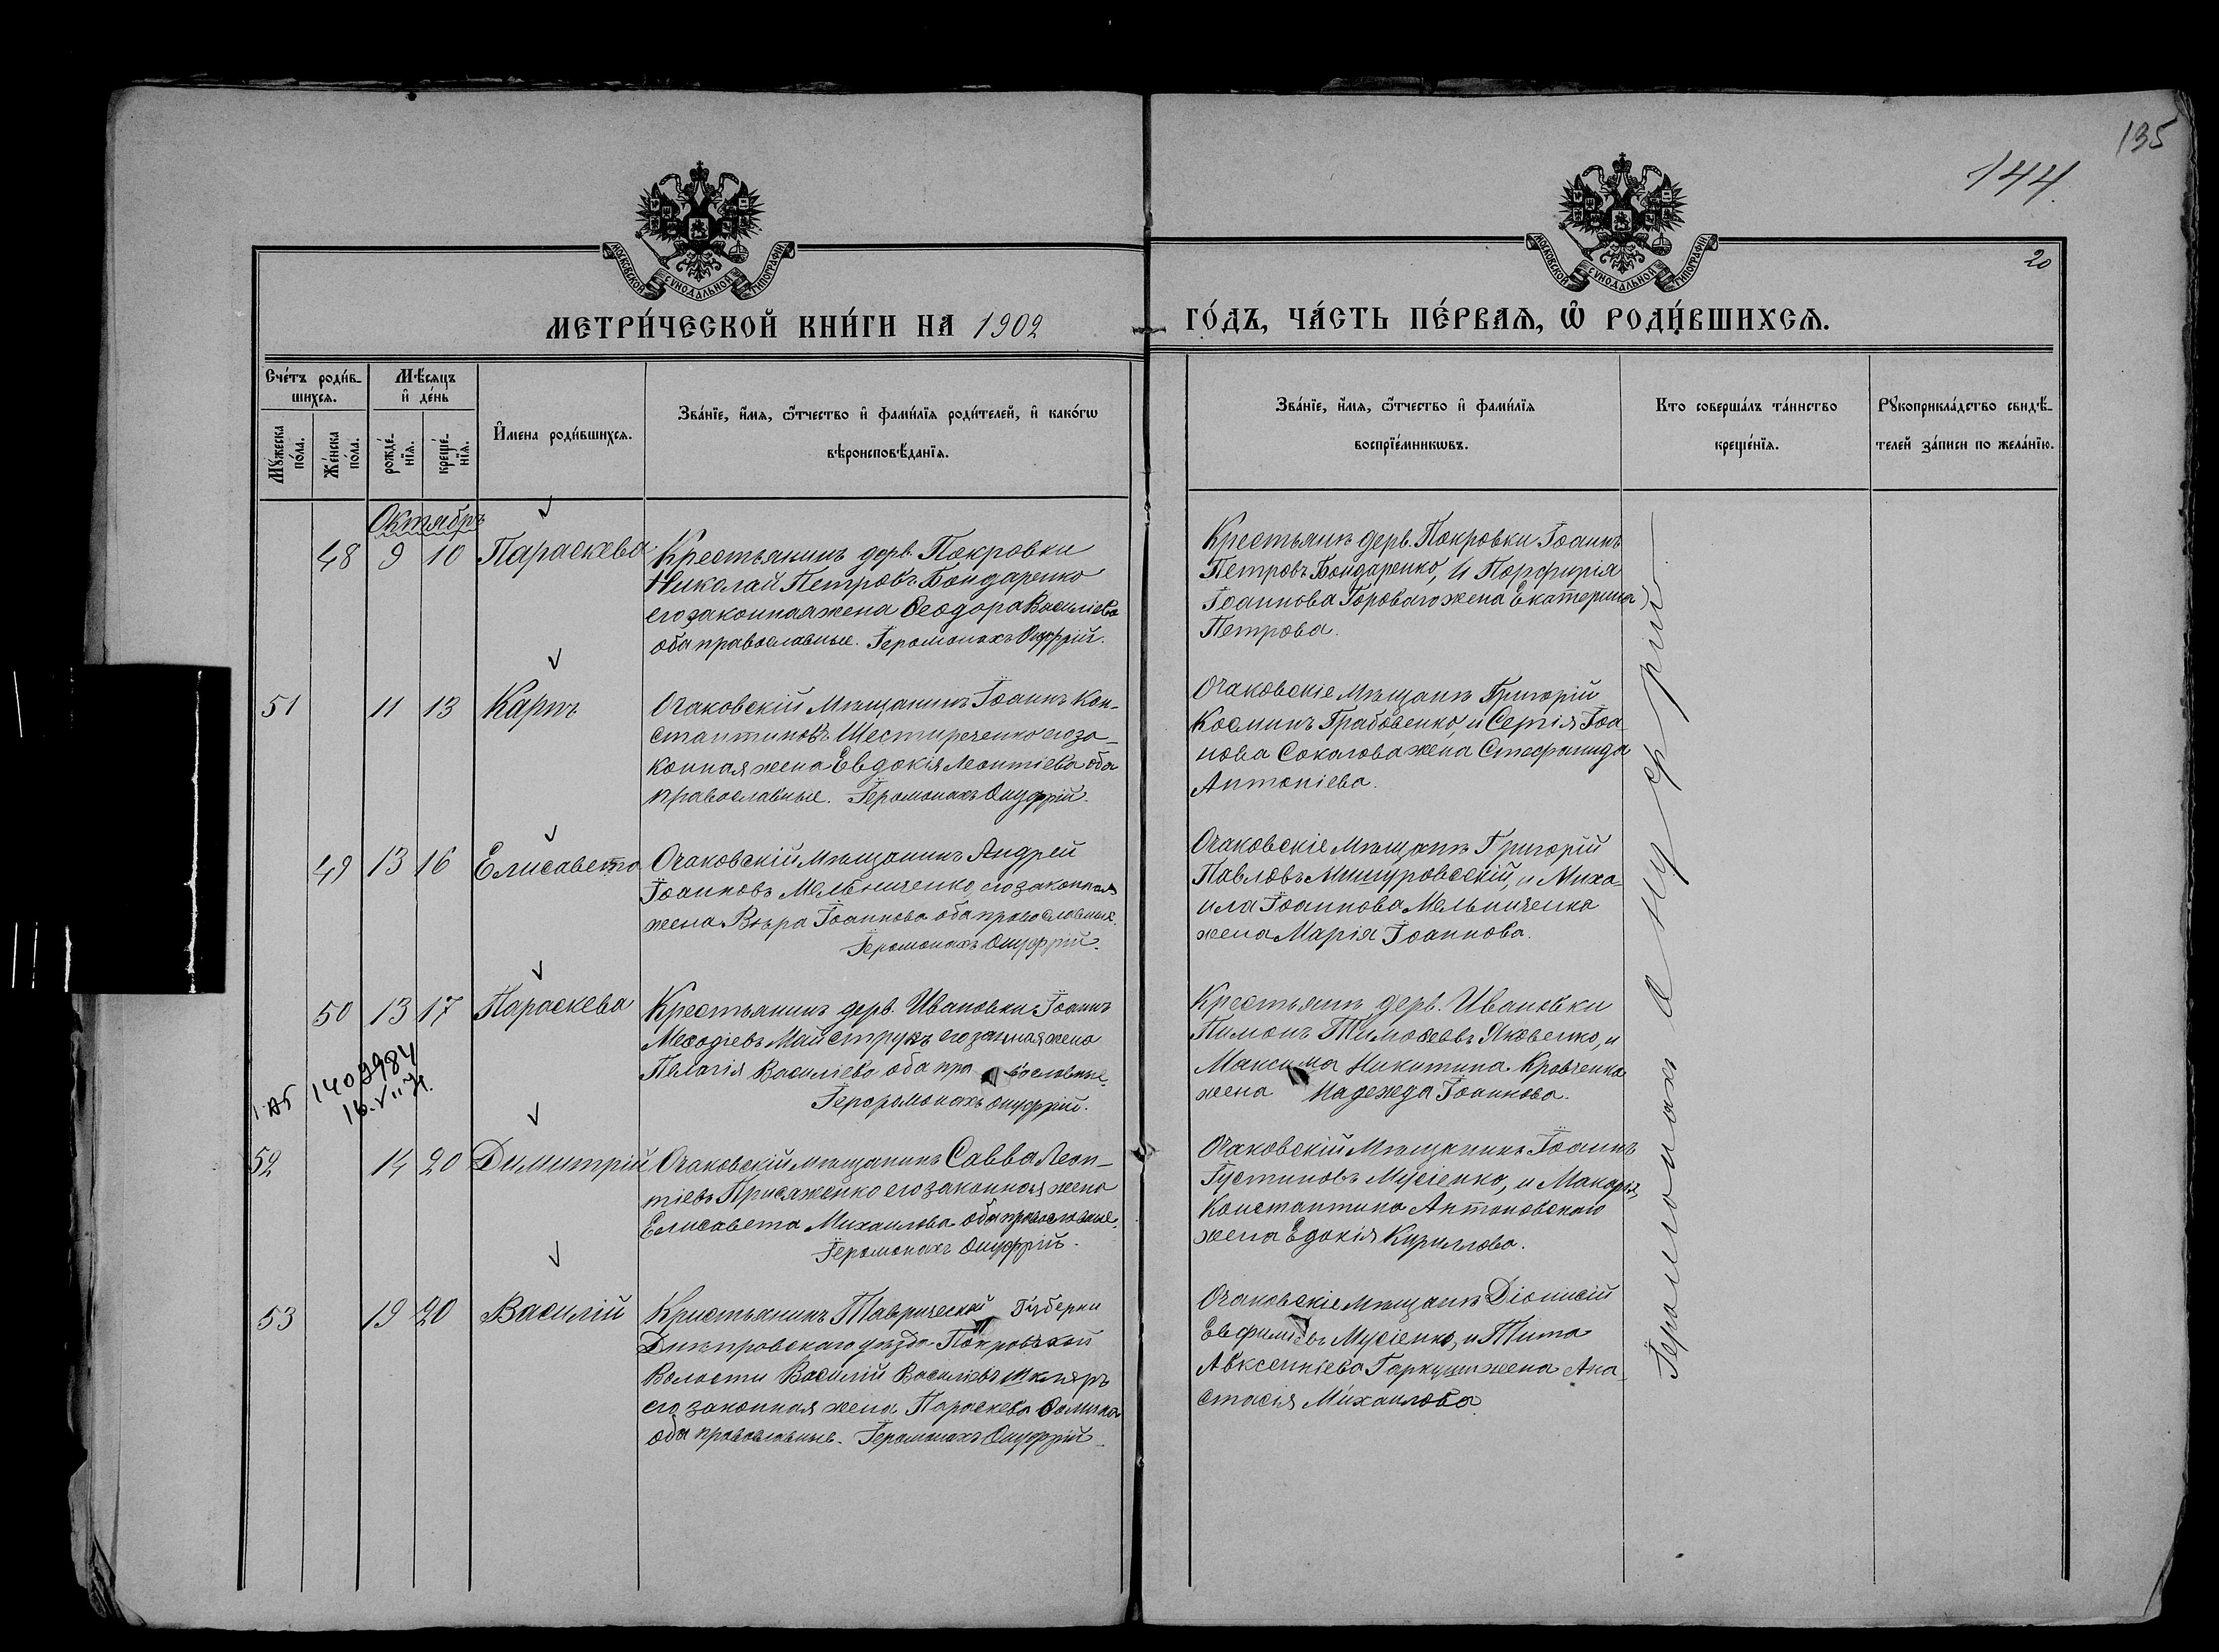 135
144
20
МОСКОВСКОЙ СѴНОДАЛЬНОЙ ТИПОГРАФІИ
МОСКОВСКОЙ СѴНОДАЛЬНОЙ ТИПОГРАФІИ
МЕТРИ́ЧЕСКОЙ КНИ́ГИ НА 1902
ГО́ДЪ, ЧА́СТЬ ПЕ́РВАѦ, Ѿ РОДИ́ВШИХСѦ.
Сче́тъ роди́в-
шихсѧ.
Мѣ́сяцъ
и҆ де́нь
Мꙋ́жеска
по́ла.
Же́нска
по́ла.
рожде́-
нїѧ.
креще́-
нїѧ.
И҆мена роди́вшихсѧ.
Зва́нїе, и҆́мѧ, ѻ҆́тчество и҆ фами́лїѧ роди́телей, и҆ како́гѡ
вѣроисповѣ́данїѧ.
Зва́нїе, и҆́мѧ, ѻ҆́тчество и҆ фами́лїѧ
воспрїе́мникѡвъ.
Кто соверша́лъ та́инство
креще́нїѧ.
Рꙋкоприкла́дство свидѣ́-
телей за́писи по жела́нїю.
Октябрь
48 9 10 Параскева
Крестьянинъ дерв. Покровки
Николай Петровъ Бондаренко
его законная жена Ѳеодора Василіева
оба православные. Іеромонахъ Онуфрій.
Крестьянъ дерв. Покровки Іоаннъ
Петровъ Бондаренко, и Порфирія
Іоаннова Горового жена Екатерина
Петрова.
51 11 13 Карпъ
Очаковскій мѣщанинъ Іоаннъ Кон-
стантиновъ Шестиреченко его за-
конная жена Евдокія Леонтіева оба
православные. Іеромонахъ Онуфрій.
Очаковскіе мѣщане Григорій
Косминъ Грабовенко, и Сергія Іоа
нова Соколова жена Стефанида
Антоніева.
49 13 16 Елисавета
Очаковскій мѣщанинъ Андрей
Іоанновъ Мельниченко, его законная
жена Вѣра Іоаннова оба православные.
Іеромонахъ Онуфрій.
Очаковскіе мѣщане Григорій
Павловъ Мишуровскій, и Миха-
ила Іоаннова Мельниченка
жена Марія Іоаннова.
50 13 17 Параскева
Крестьянинъ дерв. Ивановки Іоаннъ
Меѳодіевъ Майструкъ его заная жена
Пелагія Василіева оба пра вославные.
Іероромонахъ Онуфрій.
Крестьянъ дерв. Ивановки
Пимонъ Тимоѳеевъ Яковенко, и
Максима Никитина Кравченка
жена Надежда Іоаннова.
1409984
16.VII
52 14 20 Димитрій
Очаковскій мѣщанинъ Савва Леон-
тіевъ Присяженко его законная жена
Елисавета Михаилова оба православные.
Іеромонахъ Онуфрій.
Очаковскій мѣщанинъ Іоаннъ
Іустиновъ Мусіенко, и
Константина Антоновского
жена Едокія Кириллова.
53 19 20 Василій
Кристьянинъ Таврической Губерни
Днепровскаго уѣзда Покровской
Волости Василій Василіевъ Шкляръ
его законная жена Параскева Ѳомина
оба православные. Іеромонахъ Онуфрій
Очаковскіе мѣщане Діонисій
Евфиміевъ Мусіенко, и Тита
Авксентіева Гаркуши жена Ана-
стасія Михаилова
Іеромонахъ Онуфрій